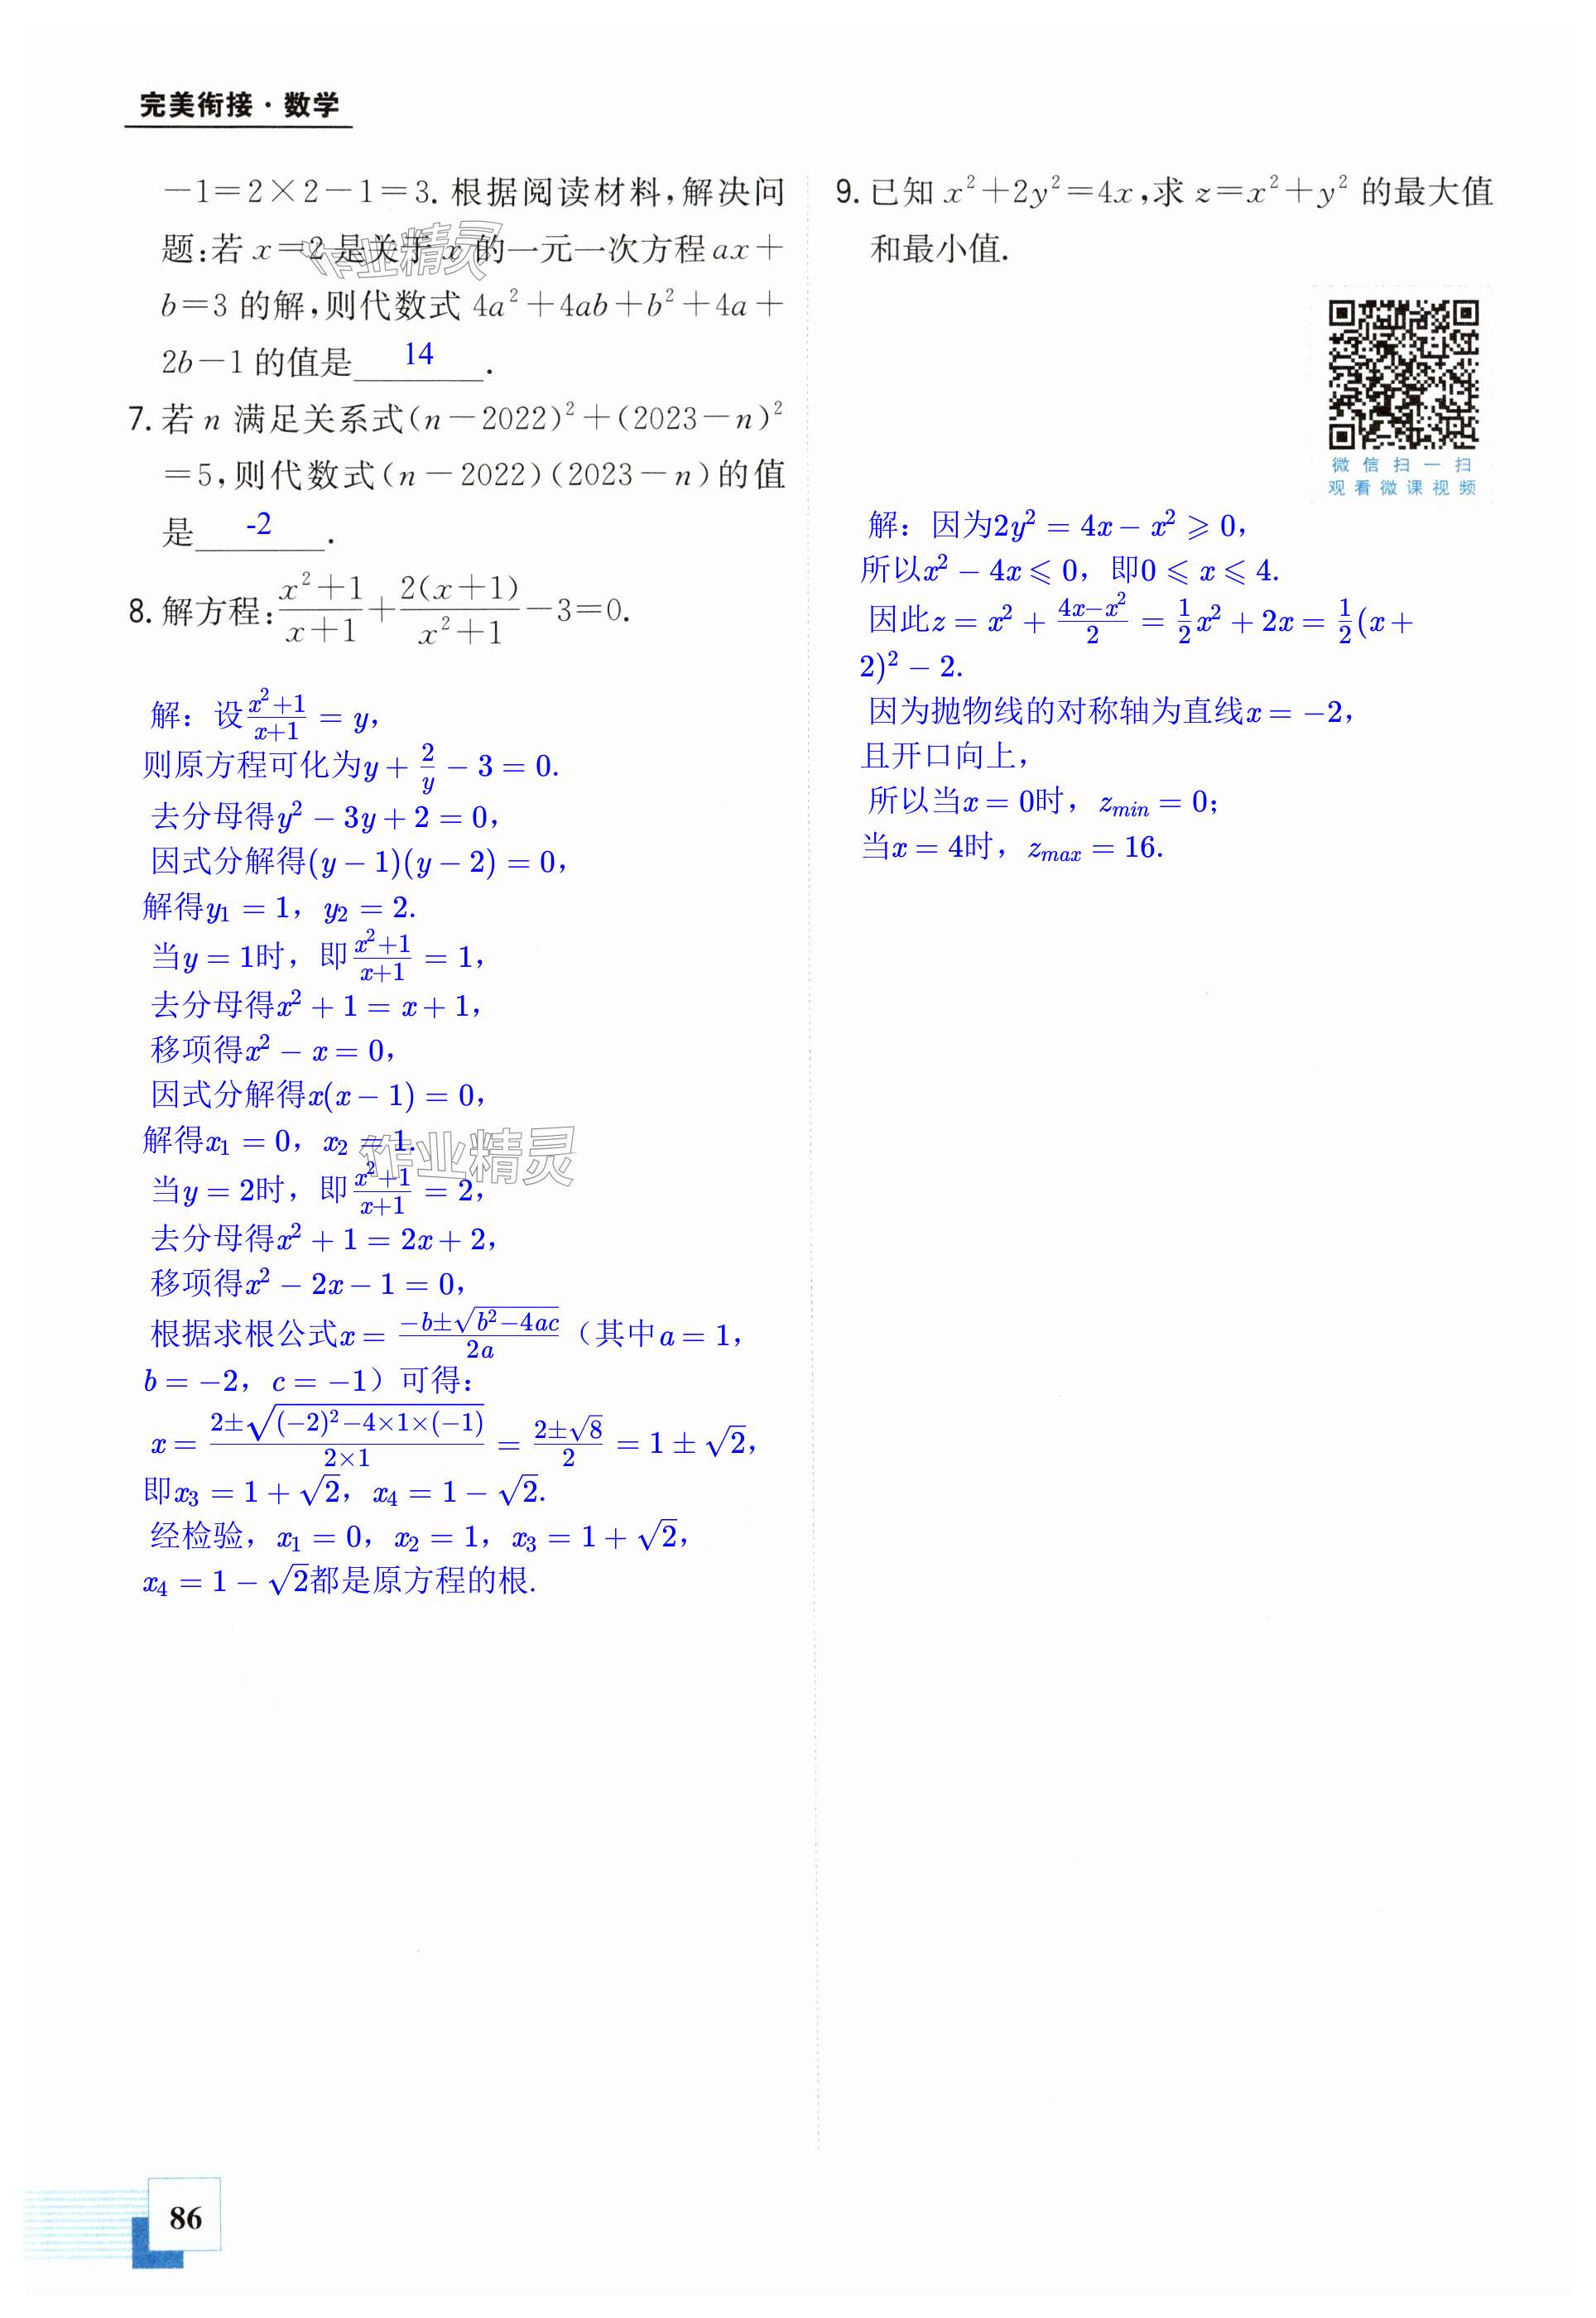 完美衔接·数学
－1＝2×2－1＝3. 根据阅读材料,解决问
题:若 x＝2 是关于 x 的一元一次方程 ax＋
b＝3 的解,则代数式 4a²＋4ab＋b²＋4a＋
2b－1 的值是 14 .
7. 若 n 满足关系式(n－2022)²＋(2023－n)²
＝5,则代数式(n－2022)(2023－n)的值
是 -2 .
8. 解方程: (x²＋1)/(x＋1)＋2(x＋1)/(x²＋1)－3＝0.
解：设(x²+1)/(x+1) = y，
则原方程可化为y + 2/y − 3 = 0.
去分母得y² − 3y + 2 = 0，
因式分解得(y − 1)(y − 2) = 0，
解得y₁ = 1，y₂ = 2.
当y = 1时，即(x²+1)/(x+1) = 1，
去分母得x² + 1 = x + 1，
移项得x² − x = 0，
因式分解得x(x − 1) = 0，
解得x₁ = 0，x₂ = 1.
当y = 2时，即(x²+1)/(x+1) = 2，
去分母得x² + 1 = 2x + 2，
移项得x² − 2x − 1 = 0，
根据求根公式x = (−b±√(b²−4ac))/(2a)（其中a = 1，
b = −2，c = −1）可得：
x = (2±√((−2)²−4×1×(−1)))/(2×1) = (2±√8)/2 = 1 ± √2，
即x₃ = 1 + √2，x₄ = 1 − √2.
经检验，x₁ = 0，x₂ = 1，x₃ = 1 + √2，
x₄ = 1 − √2都是原方程的根.
9. 已知 x²＋2y²＝4x,求 z＝x²＋y² 的最大值
和最小值.
微信扫一扫
观看微课视频
解：因为2y² = 4x − x² ⩾ 0，
所以x² − 4x ⩽ 0，即0 ⩽ x ⩽ 4.
因此z = x² + (4x−x²)/2 = 1/2x² + 2x = 1/2(x +
2)² − 2.
因为抛物线的对称轴为直线x = −2，
且开口向上，
所以当x = 0时，zmin = 0；
当x = 4时，zmax = 16.
作业精灵
作业精灵
86